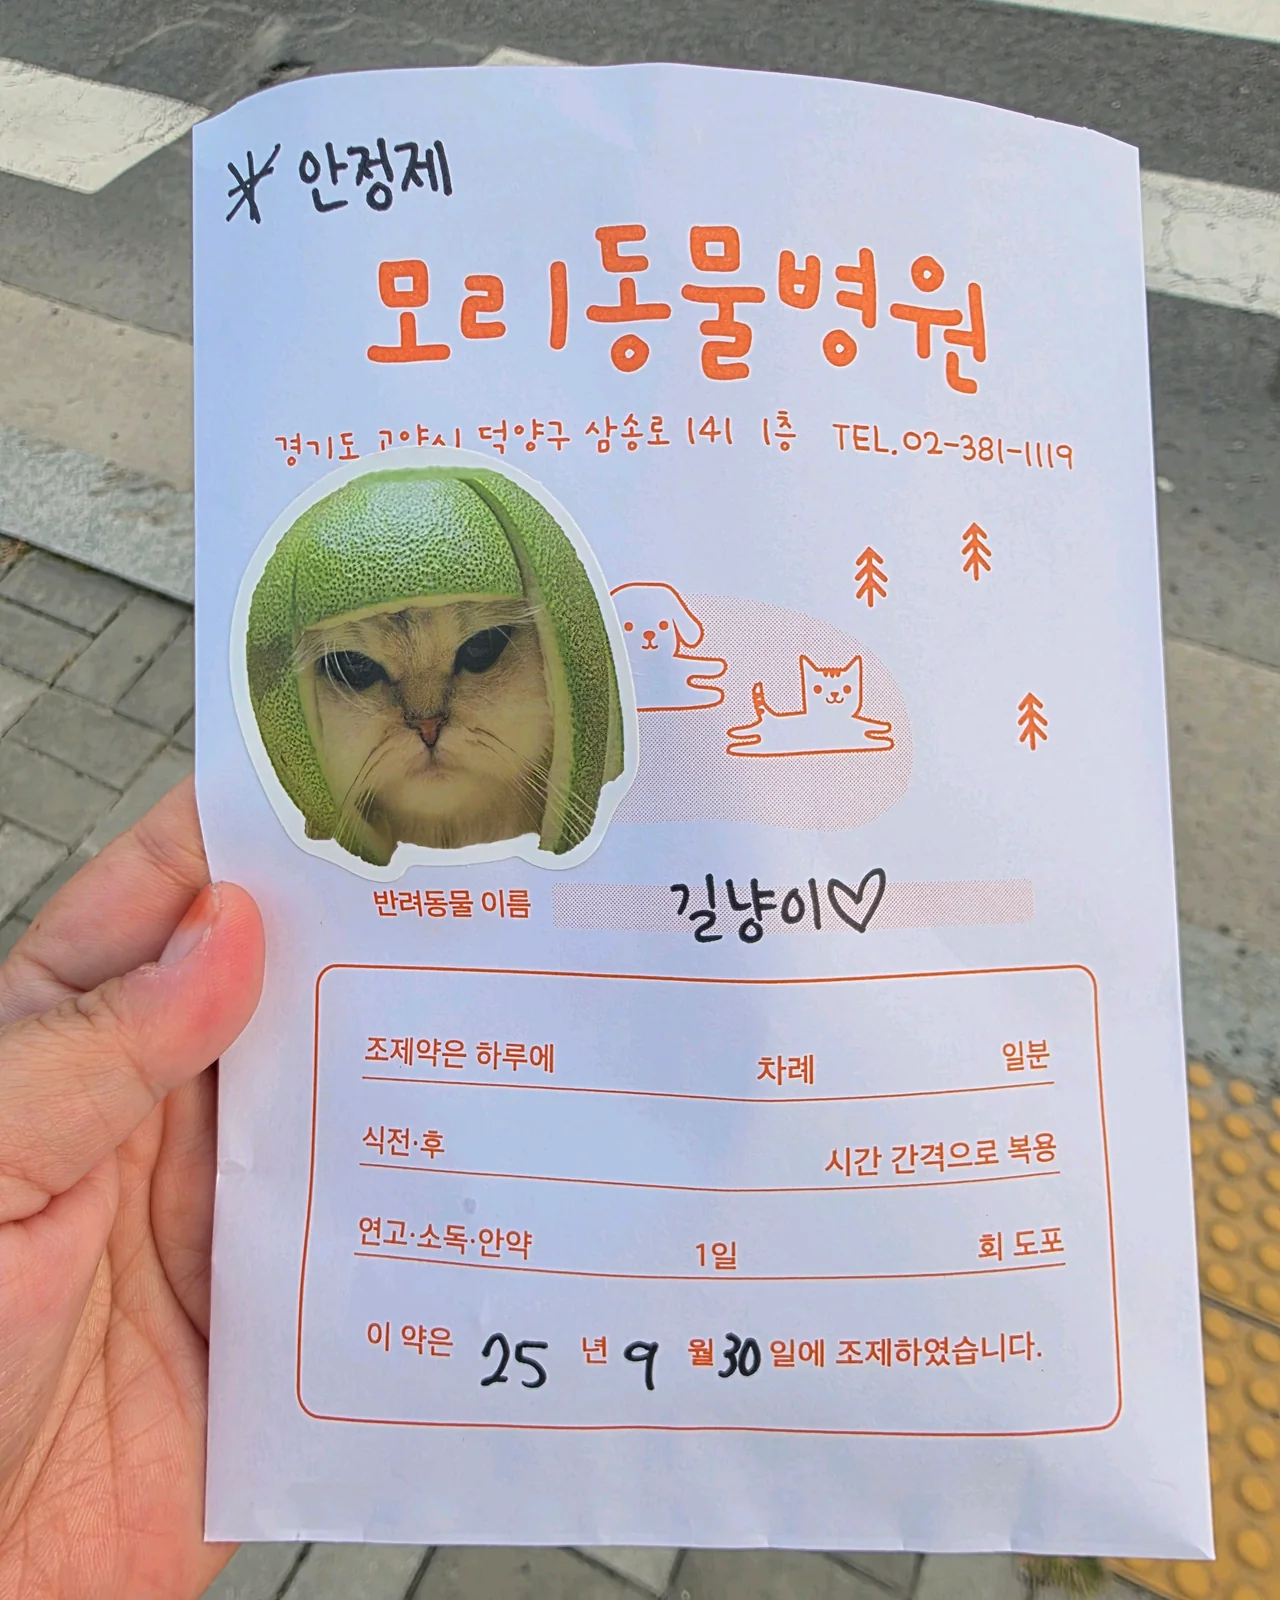 * 안정제
모리동물병원
경기도 고양시 덕양구 삼송로 141 1층 TEL.02-381-1119
반려동물 이름 길냥이♡
조제약은 하루에 차례 일분
식전·후 시간 간격으로 복용
연고·소독·안약 1일 회 도포
이 약은 25 년 9 월 30 일에 조제하였습니다.